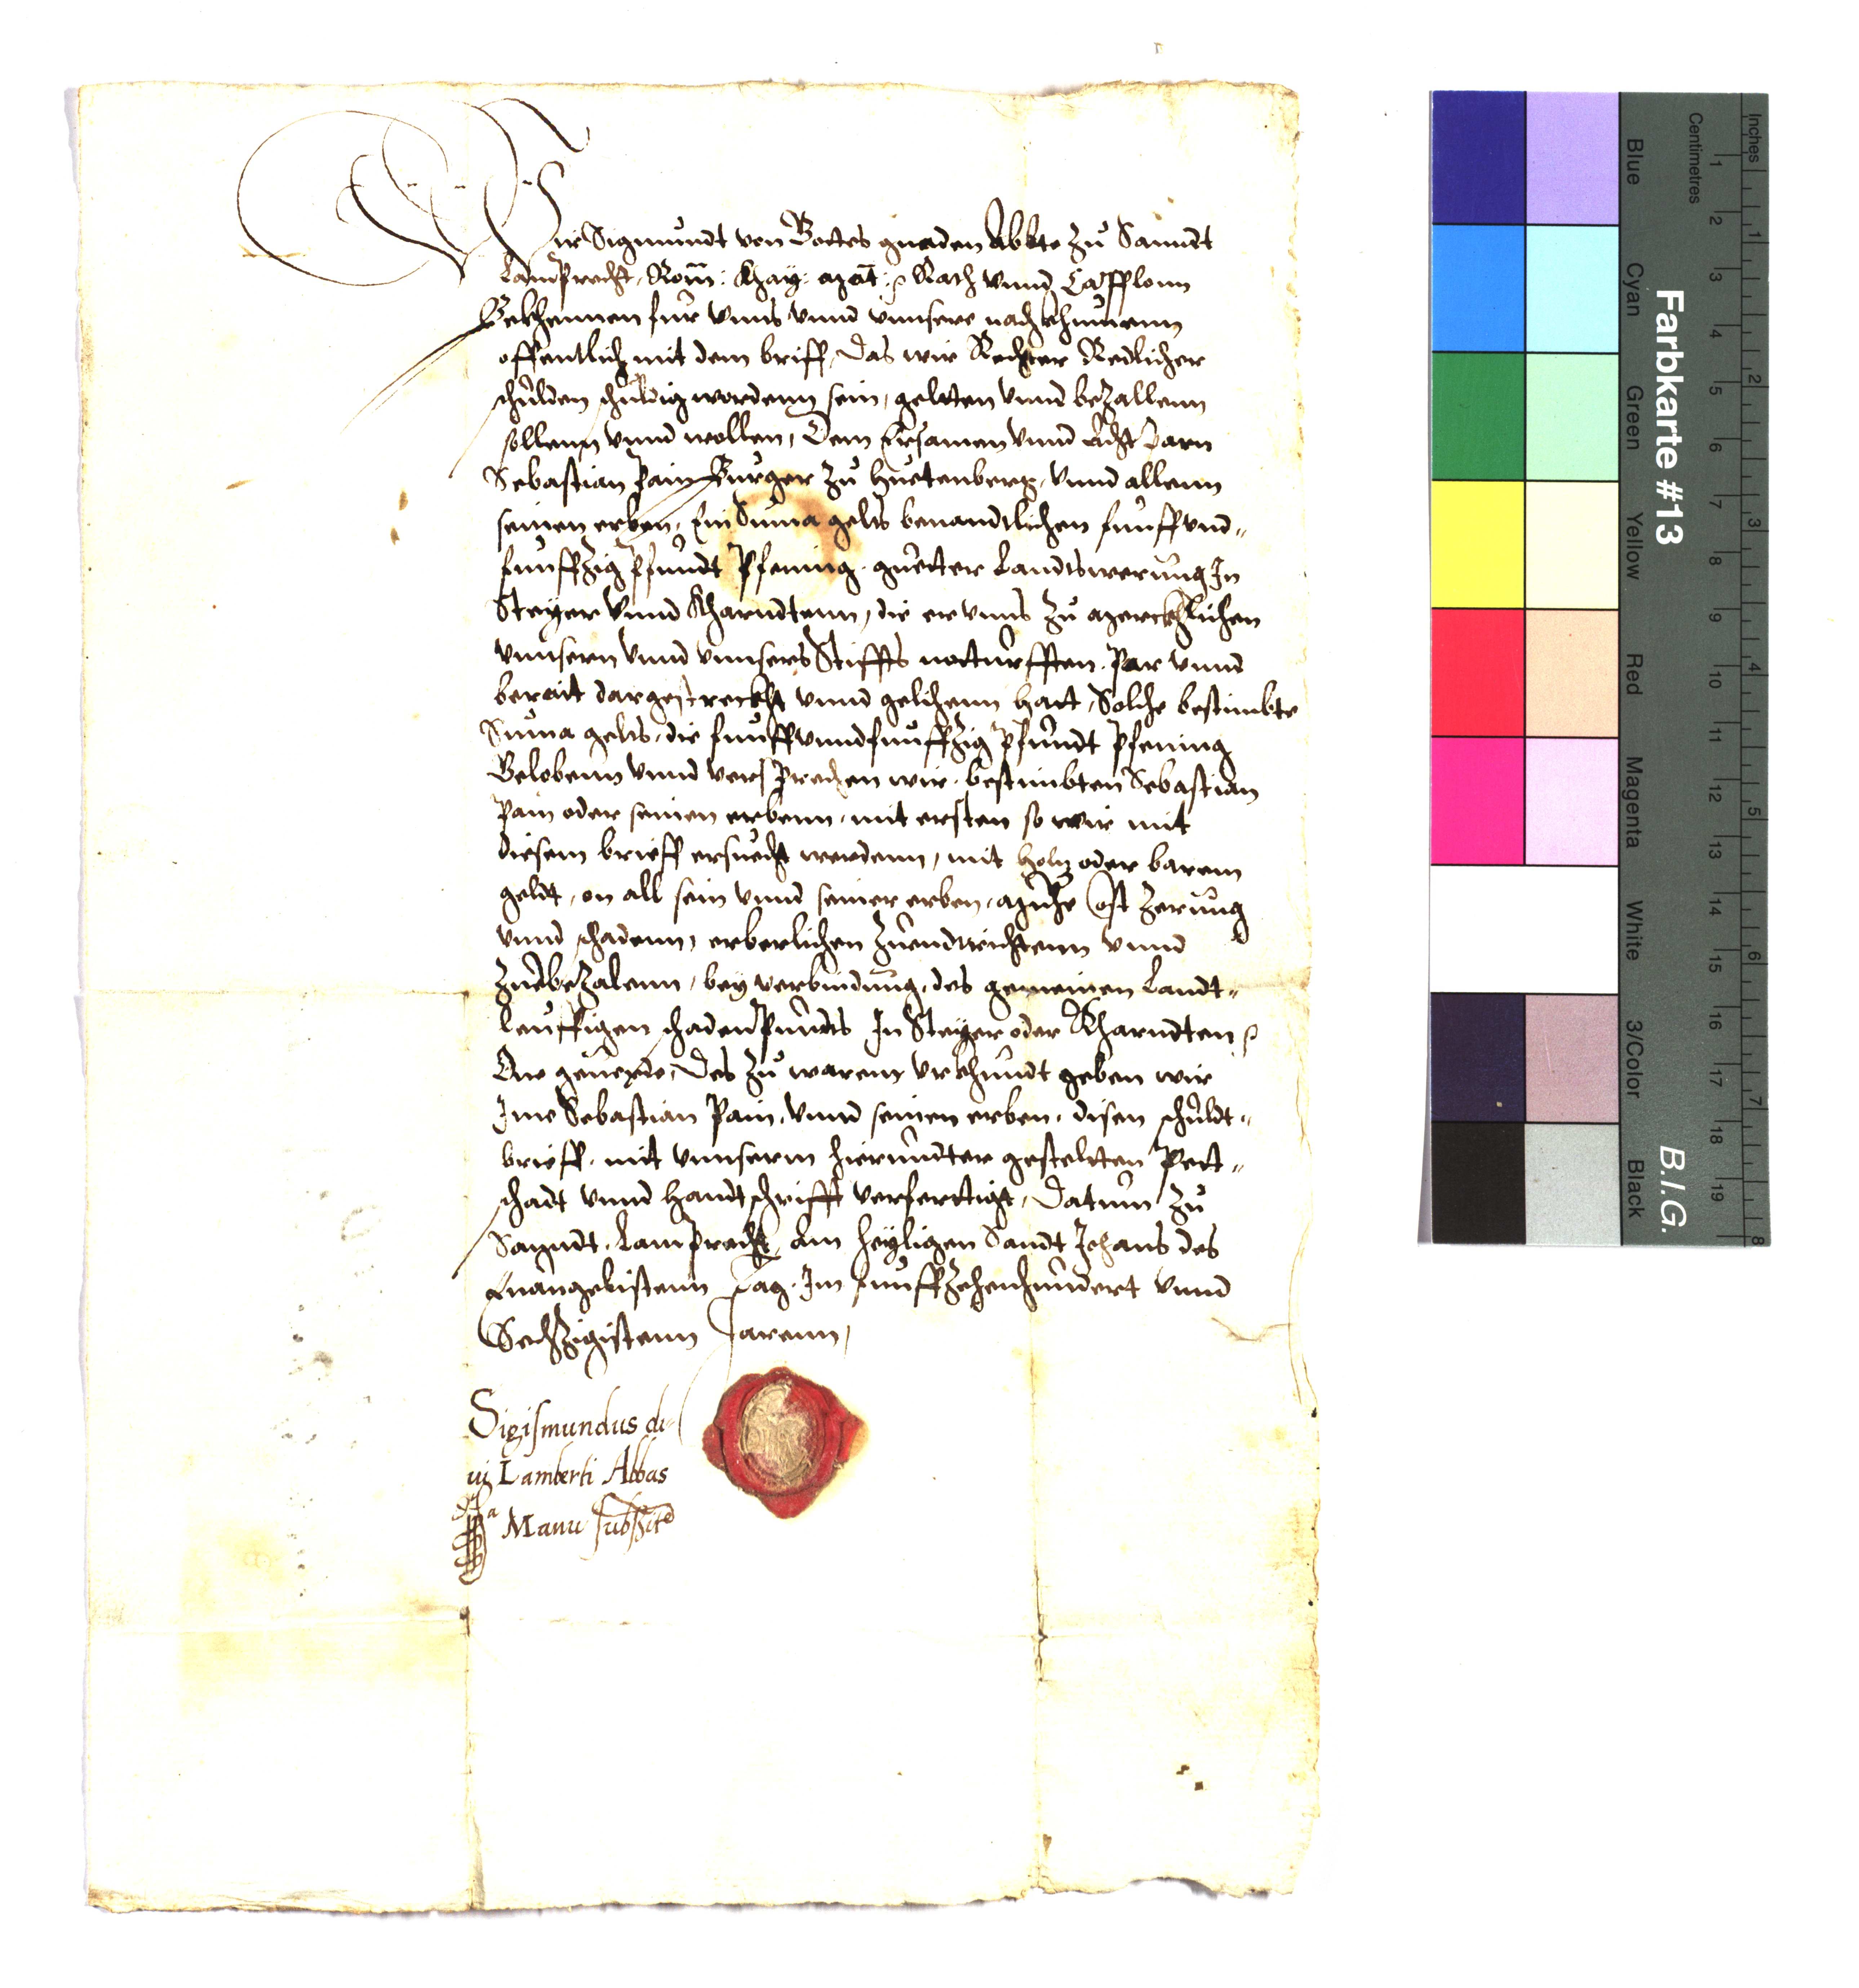 Wir Sigmundt von Gottes gnaden Abbte zu Sanndt
Lamprecht, Röm: Khay: Mat: Rath vnnd Capplonn
Bekhennen für vnns vnnd vnnsere nachkhumenn
offentlich mit dem briff, Das wir Rechter Redlicher
schulden schuldig wordenn sein, geltten vnnd bezallenn
sollenn vnnd wollen, Dem Ersamen vnnd Achtparn
Sebastian Pain Burger zu Huetenberg, vnnd allenn
seinen erben, Ein Suma gelts benandtlichen funffvnd-
funffzig Pfundt Pfening guetter Landtswerung In
Steyer vnnd Kharndtenn, die er vnns zu merckhlichen
vnnsern vnnd vnnsers Stiffts notturfften. Par vnnd
berait dargestreckht vnnd gelihenn hatt, Solche bestimbte
Suma gelts, die funffvnndfunffzig Pfundt Pfening
Gelobenn vnnd versprechen wir bestimbten Sebastian
Pain oder seinen erbenn, mit ersten so wir mit
diesem brieff ersuecht werdenn, mit Holtz oder barem
geldt, on all sein vnnd seiner erben, mühe Cost Zerung
vnnd schadenn, erberlichen zuendtrichtenn vnnd
zuebezalenn, bey verbindung, des gemeinen Landt-
leuffigen schadenpundts In Steyer oder Kharndten
One geuerde, Des zu warem vrkhundt geben wir
Ime Sebastian Pain, vnnd seinen erben, disen schuldt-
brieff, mit vnnserm hierundter gestelten Pett-
schadt vnnd Handtschrifft verferttigt, Datum zu
Sanndt Lamprecht, am heyligen Sandt Johans des
Euangelistenn Tag, Im funffzehenhundert vnnd
Sechzigistenn Jarenn,
Sigismundus di-
ui Lamberti Abbas
Manu